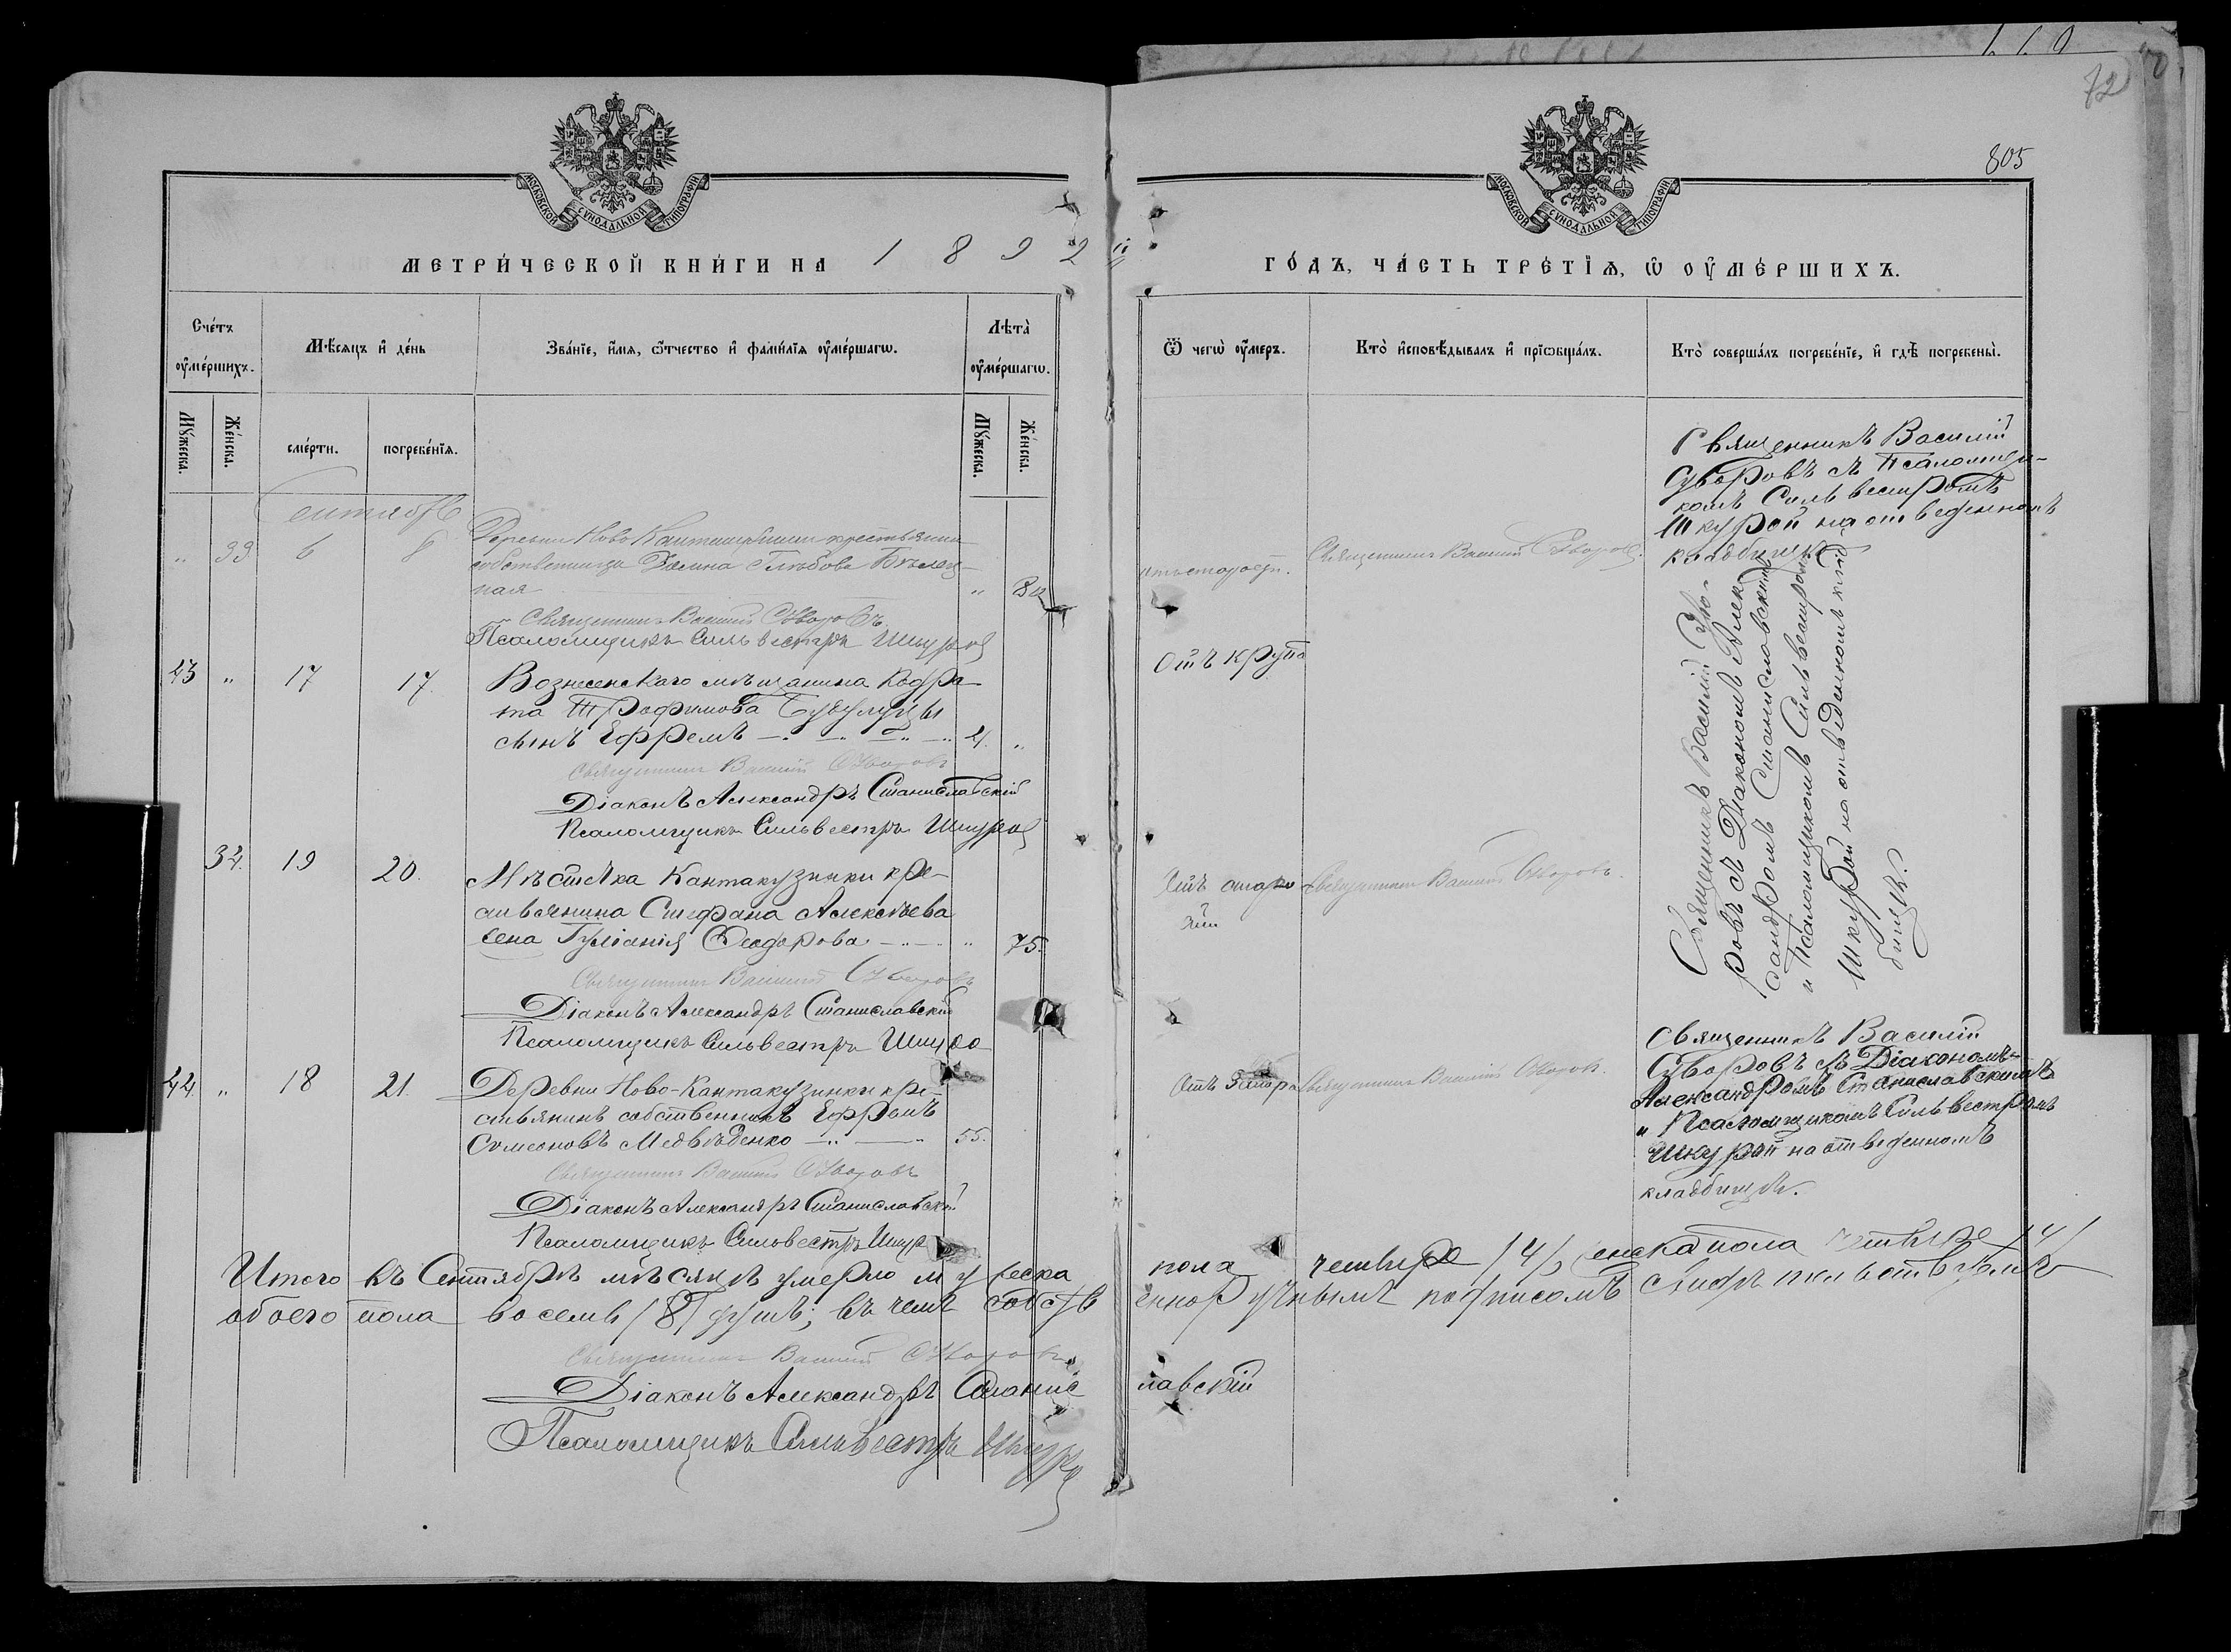 72
805
МОСКОВСКОЙ СѴНОДАЛЬНОЙ ТИПОГРАФІИ
МОСКОВСКОЙ СѴНОДАЛЬНОЙ ТИПОГРАФІИ
МЕТРИ́ЧЕСКОЙ КНИ́ГИ НА 1892
ГО́ДЪ, ЧА́СТЬ ТРЕ́ТІѦ, Ѽ ОУ҆МЕ́РШИХЪ.
Сче́тъ оу҆ме́ршихъ.
Мѣ́сяцъ и҆ де́нь
Зва́нїе, и҆́мя, ѻ҆́тчество и҆ фами́лїя оу҆ме́ршагѡ.
Лѣта̀ оу҆ме́ршагѡ.
Ѿ чегѡ̀ оу҆́меръ.
Кто̀ и҆сповѣ́дывалъ и҆ прїѡбща́лъ.
Кто̀ соверша́лъ погребе́нїе, и҆ гдѣ̀ погребены̀.
Мꙋ́жеска.
Же́нска.
сме́рти.
погребе́нїя.
Мꙋ́жеска.
Же́нска.
Сентябрь
" 33 6 8
Деревни Ново Кантакузинки крестьянин
собственница Глѣбова Бѣлец-
кая " 80
Священникъ Василій Суворовъ.
Псаломщикъ Сильвестръ Шкура
Священникъ Василій Суворовъ.
Священникъ Василій
Суворовъ съ Псаломщи-
комъ Сильвестромъ
Шкурой на отведенномъ
кладбищѣ.
43 " 17 17.
Вознесенскаго мѣщанина Кодра-
та Трофимова
сынъ Ефремъ 4. "
Священникъ Василій Суворовъ
Діаконъ Александръ Станиславскій
Псаломщикъ Сильвестръ Шкура
Отъ крупа
Священникъ Василій Суво-
ровъ съ Діакономъ Алек-
сандромъ Станиславскимъ
и Псаломщикомъ Сильвестромъ
Шкурой на отведенномъ клад-
бищѣ.
34. 19 20.
Мѣстечка Кантакузинки кре-
стьянина Стефана Алексѣева
жена Іуліанія Феодорова " 75.
Священникъ Василій Суворовъ
Діаконъ Александръ Станиславскій
Псаломщикъ Сильвестръ Шкура
Отъ старо
сти
Священникъ Василій Суворовъ.
44. " 18 21.
Деревни Ново-Кантакузинки кре-
стьянинъ собственникъ Ефремъ
Симеоновъ Медвѣденко 55.
Священникъ Василій Суворовъ
Діаконъ Александръ Станиславскій
Псаломщикъ Сильвестръ Шкура
Отъ запора
Священникъ Василій Суворовъ.
Священникъ Василій
Суворовъ съ Діакономъ
Александромъ Станиславскимъ
и Псаломщикомъ Сильвестромъ
Шкурой на отведенномъ
кладбищѣ.
Итого въ Сентябрѣ мѣсяцѣ умерло мужеска пола четыре /4/, женска пола четыре /4/
обоего пола восемь /8/ душъ; въ чемъ собственноручнымъ подписомъ свидѣтельствуемъ
Священникъ Василій Суворовъ
Діаконъ Александръ Станиславскій
Псаломщикъ Сильвестръ Шкура